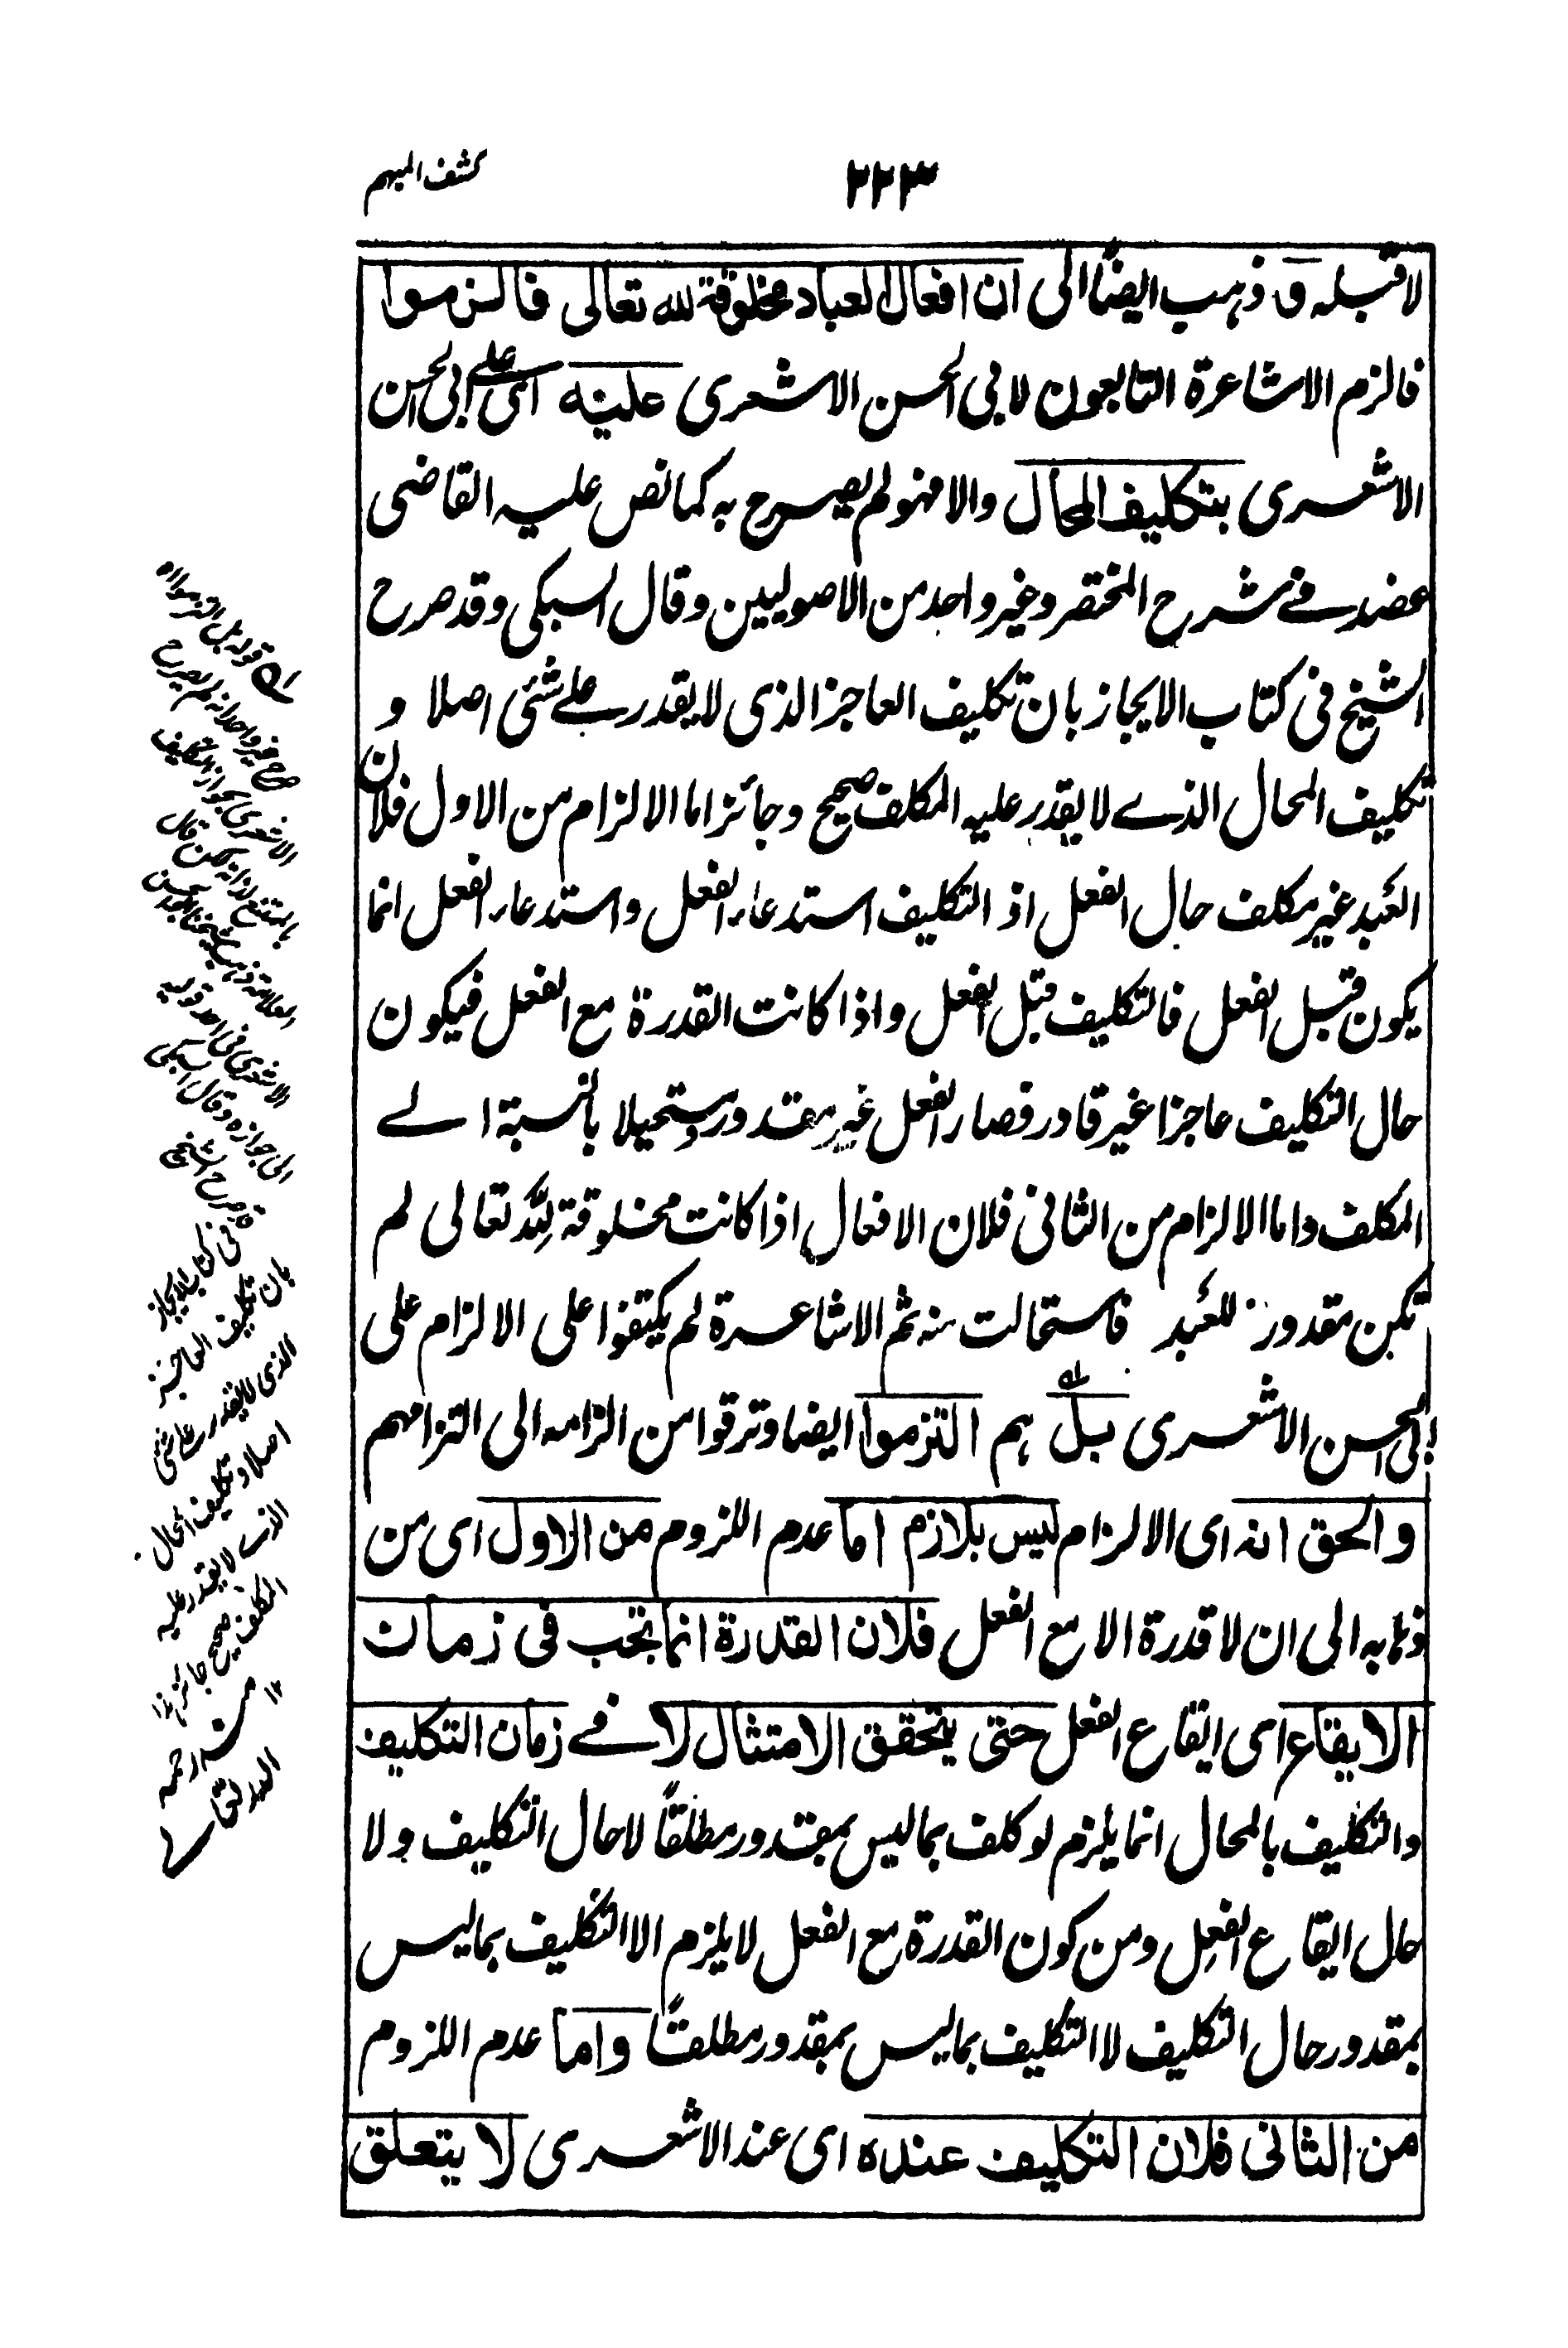 ٢٢٣
كشف المبهم
لا قبله و ذهب ايضًا الى ان افعال العباد مخلوقة لله تعالى فالزموا
فالزم الاشاعرة التابعون لابى الحسن الاشعرى عليه اى على ابى الحسن
الاشعرى بتكليف المحال والا فهو لم يصرح به كما نص عليه القاضى
عضد فى شرح المختصر وغير واحد من الاصوليين وقال السبكى وقد صرح
الشيخ فى كتاب الايجاز بان تكليف العاجز الذى لا يقدر على شئى اصلا و
تكليف المحال الذى لا يقدر عليه المكلف صحيح وجائز اما الالزام من الاول فلان
العبد غير مكلف حال الفعل اذ التكليف استدعاء الفعل واستدعاء الفعل انما
يكون قبل الفعل فالتكليف قبل الفعل واذا كانت القدرة مع الفعل فيكون
حال التكليف عاجزا غير قادر فصار الفعل غير مقدور ومستحيلا بالنسبة الى
المكلف واما الالزام من الثانى فلان الافعال اذا كانت مخلوقة لله تعالى لم
تكن مقدورة للعبد فاستحالت منه ثم الاشاعرة لم يكتفوا على الالزام على
ابى الحسن الاشعرى بل هم التزموا ايضا وترقوا من الزامه الى التزامهم
و الحق انه اى الالزام ليس بلازم اما عدم اللزوم من الاول اى من
ذهابه الى ان لا قدرة الا مع الفعل فلان القدرة انما تجب فى زمان
الايقاع اى ايقاع الفعل حتى يتحقق الامتثال لا فى زمان التكليف
والتكليف بالمحال انما يلزم لو كلف بما ليس بمقدور مطلقاً لا حال التكليف ولا
حال ايقاع الفعل ومن كون القدرة مع الفعل لا يلزم الا التكليف بما ليس
بمقدور حال التكليف لا التكليف بما ليس بمقدور مطلقاً واما عدم اللزوم
من الثانى فلان التكليف عنده اى عند الاشعرى لا يتعلق
له قوله بل التزموا اه
صرح غير واحد انه لم يصرح
الاشعرى بجواز التكليف
بالممتنع لذاته لكن قال
العلامة ذهب شيخنا ابو الحسن
الاشعرى فى احد قوليه
الى جوازه وقال السبكى
قد صرح الشيخ
فى كتاب الايجاز
بان تكليف العاجز
الذى لا يقدر على شئى
اصلا وتكليف المحال
الذى لا يقدر عليه
المكلف صحيح جائز
١٢
منه رحمه
الله تعالى